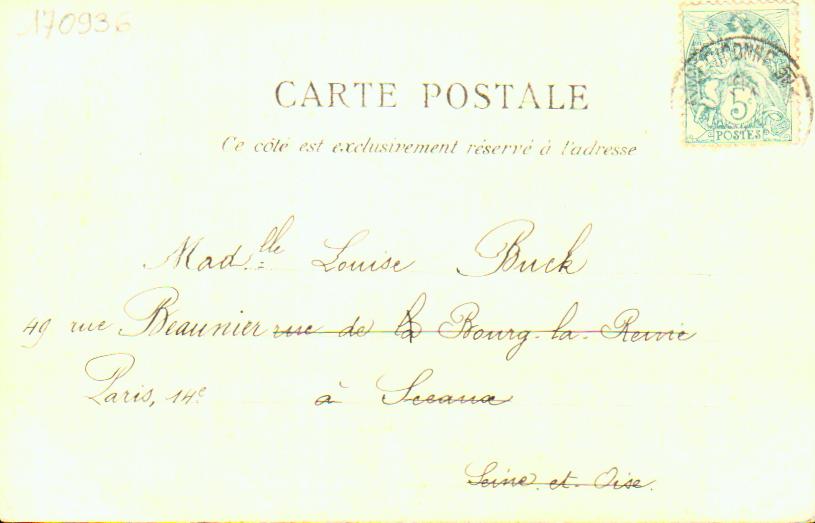 170936
CARTE POSTALE
Ce côté est exclusivement réservé à l'adresse
5c
POSTES
Mad.lle Louise Buck
49 rue Beaunier rue de la Bourg-la-Reine
Paris, 14e à Sceaux
Seine-et-Oise.